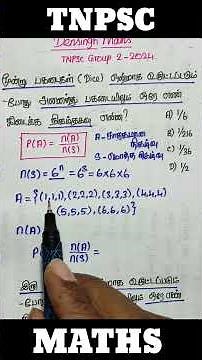 TNPSC
Densingh Maths
TNPSC Group 2-2024
மூன்று பகடைகள் (Dice) ஒன்றாக உருட்டப்படும்
போது அனைத்து பகடையிலும் ஒரே எண்
கிடைக்க நிகழ்தகவு என்ன?
A) 1/216
P(A) = n(A)/n(S)
A -
S -
B) 1/36
C) 1/16
D) 1/2
n(S) = 6ⁿ = 6³ = 6×6×6
A = {(1,1,1), (2,2,2), (3,3,3), (4,4,4)
(5,5,5), (6,6,6)}
n(A)
P n(A)/n(S) =
MATHS